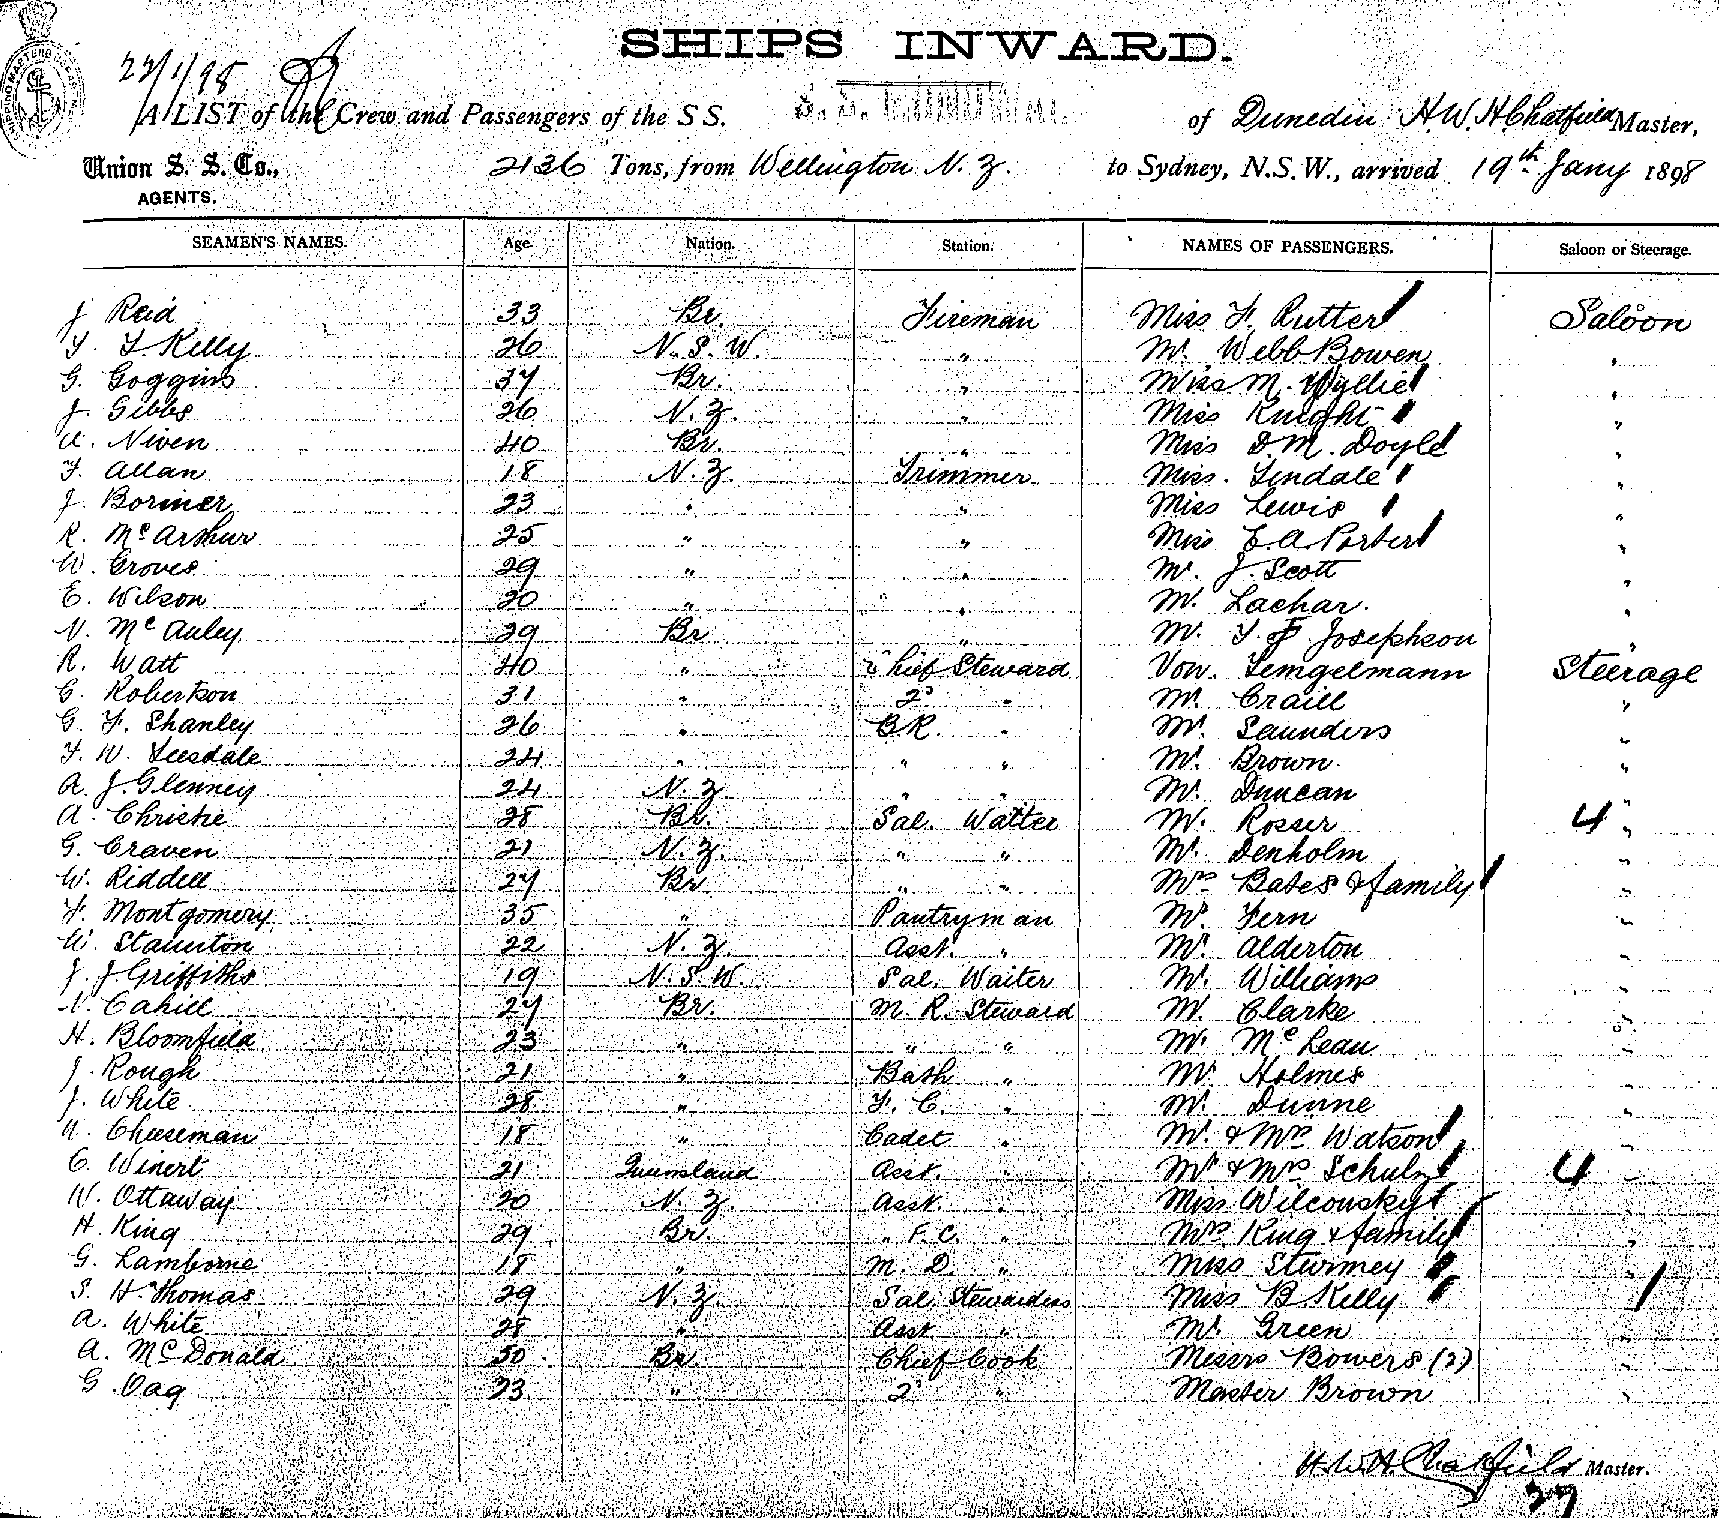 SHIPS INWARD.
22/1/98
A LIST of the Crew and Passengers of the S S. of Dunedin H. W. H. Chatfield Master,
Union S. S. Co., 2136 Tons, from Wellington N. Z. to Sydney, N.S.W., arrived 19th Jany 1898
AGENTS.
SEAMEN'S NAMES. Age. Nation. Station. NAMES OF PASSENGERS. Saloon or Steerage.
J Reid 33 Br. Fireman Miss F. Rutter Saloon
Y. F. Kelly 26 N. S. W. " Mr. Webb Bowen "
G. Goggins 37 Br. " Miss M. Wyllie "
J. Gibbs 26 N. Z. " Miss Knight "
A. Niven 40 Br. " Miss D. M. Doyle "
F. Allan 18 N. Z. Trimmer Miss. Tindale "
J. Bormer 23 " " Miss Lewis "
R. McArthur 25 " " Miss E. A. Porter "
W. Groves 29 " " Mr. J. Scott "
E. Wilson 20 " " Mr. Lachar. "
N. McAuley 29 Br " Mr. Y F Josephson "
R. Watt 40 " Chief Steward Von. Lemgelmann Steerage
G. Robertson 31 " 2d " Mr. Craill "
G. F. Shanley 26 " B.R. " Mr. Saunders "
F. W. Leesdale 24 " " " Mr. Brown. "
A. J. Glenney 24 N. Z. " " Mr. Duncan "
A. Christie 28 Br. Sal. Waiter Mr. Rosser 4 "
G. Craven 21 N. Z. " " Mr. Denholm "
W. Riddell 27 Br " " Mrs Bates & family "
F. Montgomery 35 " Pantryman Mr. Fern "
W. Staunton 22 N. Z. Asst. " Mr. Alderton "
J. J Griffiths 19 N. S. W. Sal. Waiter Mr. Williams "
N. Cahill 27 Br. M. R. Steward Mr. Clarke "
H. Bloomfield 23 " " " Mr. McLean "
J. Rough 21 " Bath " Mr Holmes "
J. White 28 " F. C. " Mr. Dunne "
A. Cheeseman 18 " Cadet " Mr. & Mrs Watson "
C. Winert 21 Queensland Asst. " Mr & Mrs Schulz 4 "
W. Ottaway 20 N. Z. Asst. " Miss Wilcousky "
H. King 29 Br " F. C. " Mrs. King & family "
G. Lamborne 18 " M. D. " Miss Sturmey "
S. H. Thomas 29 N. Z. Sal. Stewardess Miss B Kelly "
A. White 28 " Asst " Mr. Green "
A. McDonald 50 Br Chief Cook Messrs Bowers (2) "
G. Oag 23 " 2d " Master Brown "
H. W. H. Chatfield Master.
27